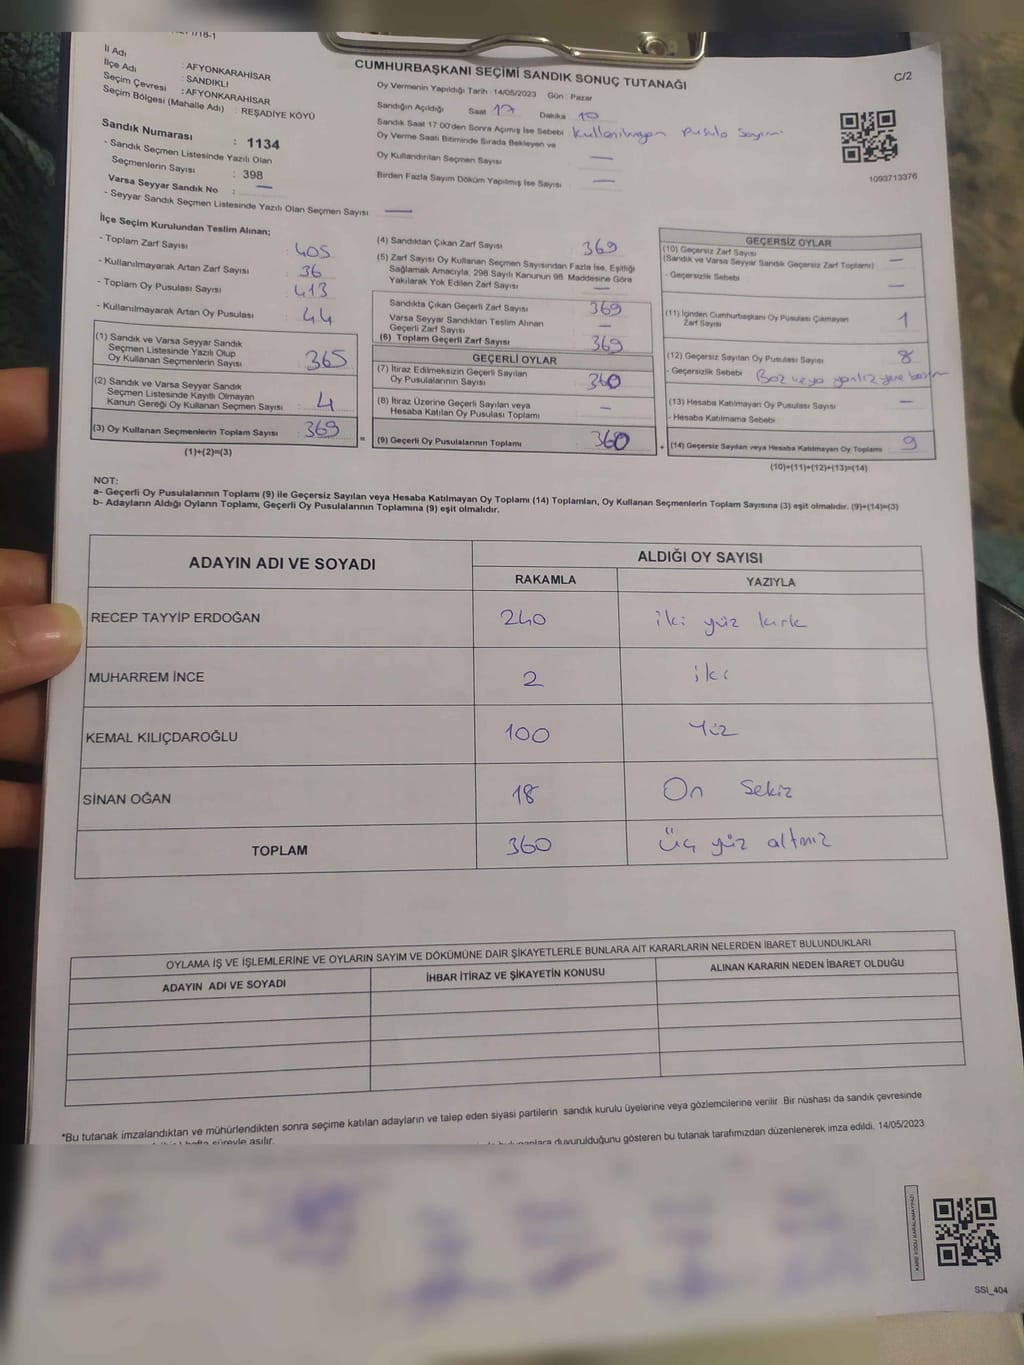 CUMHURBAŞKANI SEÇİMİ SANDIK SONUÇ TUTANAĞI
C/2
İl Adı : AFYONKARAHİSAR
İlçe Adı : SANDIKLI
Seçim Çevresi : AFYONKARAHİSAR
Seçim Bölgesi (Mahalle Adı) : REŞADİYE KÖYÜ
Sandık Numarası : 1134
- Sandık Seçmen Listesinde Yazılı Olan
Seçmenlerin Sayısı : 398
Varsa Seyyar Sandık No : —
- Seyyar Sandık Seçmen Listesinde Yazılı Olan Seçmen Sayısı —
Oy Vermenin Yapıldığı Tarih : 14/05/2023 Gün : Pazar
Sandığın Açıldığı Saat 17 Dakika 10
Sandık Saat 17:00'den Sonra Açımış İse Sebebi kullanılmayan pusula sayımı
Oy Verme Saati Bitiminde Sırada Bekleyen ve
Oy Kullandırılan Seçmen Sayısı —
Birden Fazla Sayım Döküm Yapılmış İse Sayısı —
1093713376
İlçe Seçim Kurulundan Teslim Alınan;
- Toplam Zarf Sayısı : 405
- Kullanılmayarak Artan Zarf Sayısı : 36
- Toplam Oy Pusulası Sayısı : 413
- Kullanılmayarak Artan Oy Pusulası : 44
(1) Sandık ve Varsa Seyyar Sandık
Seçmen Listesinde Yazılı Olup
Oy Kullanan Seçmenlerin Sayısı : 365
(2) Sandık ve Varsa Seyyar Sandık
Seçmen Listesinde Kayıtlı Olmayan
Kanun Gereği Oy Kullanan Seçmen Sayısı : 4
(3) Oy Kullanan Seçmenlerin Toplam Sayısı : 369
(1)+(2)=(3)
(4) Sandıktan Çıkan Zarf Sayısı 369
(5) Zarf Sayısı Oy Kullanan Seçmen Sayısından Fazla İse, Eşitliği
Sağlamak Amacıyla, 298 Sayılı Kanunun 98. Maddesine Göre
Yakılarak Yok Edilen Zarf Sayısı —
Sandıkta Çıkan Geçerli Zarf Sayısı 369
Varsa Seyyar Sandıktan Teslim Alınan
Geçerli Zarf Sayısı —
(6) Toplam Geçerli Zarf Sayısı 369
GEÇERLİ OYLAR
(7) İtiraz Edilmeksizin Geçerli Sayılan
Oy Pusulalarının Sayısı 360
(8) İtiraz Üzerine Geçerli Sayılan veya
Hesaba Katılan Oy Pusulası Toplamı —
= (9) Geçerli Oy Pusulalarının Toplamı 360
GEÇERSİZ OYLAR
(10) Geçersiz Zarf Sayısı
(Sandık ve Varsa Seyyar Sandık Geçersiz Zarf Toplamı) —
- Geçersizlik Sebebi —
(11) İçinden Cumhurbaşkanı Oy Pusulası Çıkmayan
Zarf Sayısı 1
(12) Geçersiz Sayılan Oy Pusulası Sayısı 8
- Geçersizlik Sebebi Boz veya yanlız yere basım
(13) Hesaba Katılmayan Oy Pusulası Sayısı —
- Hesaba Katılmama Sebebi
+ (14) Geçersiz Sayılan veya Hesaba Katılmayan Oy Toplamı 9
(10)+(11)+(12)+(13)=(14)
NOT:
a- Geçerli Oy Pusulalarının Toplamı (9) ile Geçersiz Sayılan veya Hesaba Katılmayan Oy Toplamı (14) Toplamları, Oy Kullanan Seçmenlerin Toplam Sayısına (3) eşit olmalıdır. (9)+(14)=(3)
b- Adayların Aldığı Oyların Toplamı, Geçerli Oy Pusulalarının Toplamına (9) eşit olmalıdır.
ADAYIN ADI VE SOYADI ALDIĞI OY SAYISI
RAKAMLA YAZIYLA
RECEP TAYYİP ERDOĞAN 240 iki yüz kırk
MUHARREM İNCE 2 iki
KEMAL KILIÇDAROĞLU 100 Yüz
SİNAN OĞAN 18 On Sekiz
TOPLAM 360 üç yüz altmız
OYLAMA İŞ VE İŞLEMLERİNE VE OYLARIN SAYIM VE DÖKÜMÜNE DAİR ŞİKAYETLERLE BUNLARA AİT KARARLARIN NELERDEN İBARET BULUNDUKLARI
ADAYIN ADI VE SOYADI İHBAR İTİRAZ VE ŞİKAYETİN KONUSU ALINAN KARARIN NEDEN İBARET OLDUĞU
*Bu tutanak imzalandıktan ve mühürlendikten sonra seçime katılan adayların ve talep eden siyasi partilerin sandık kurulu üyelerine veya gözlemcilerine verilir. Bir nüshası da sandık çevresinde
hafta süreyle asılır.
duyurulduğunu gösteren bu tutanak tarafımızdan düzenlenerek imza edildi. 14/05/2023
KARE KODU KARALAMAYINIZ!
SSI_404